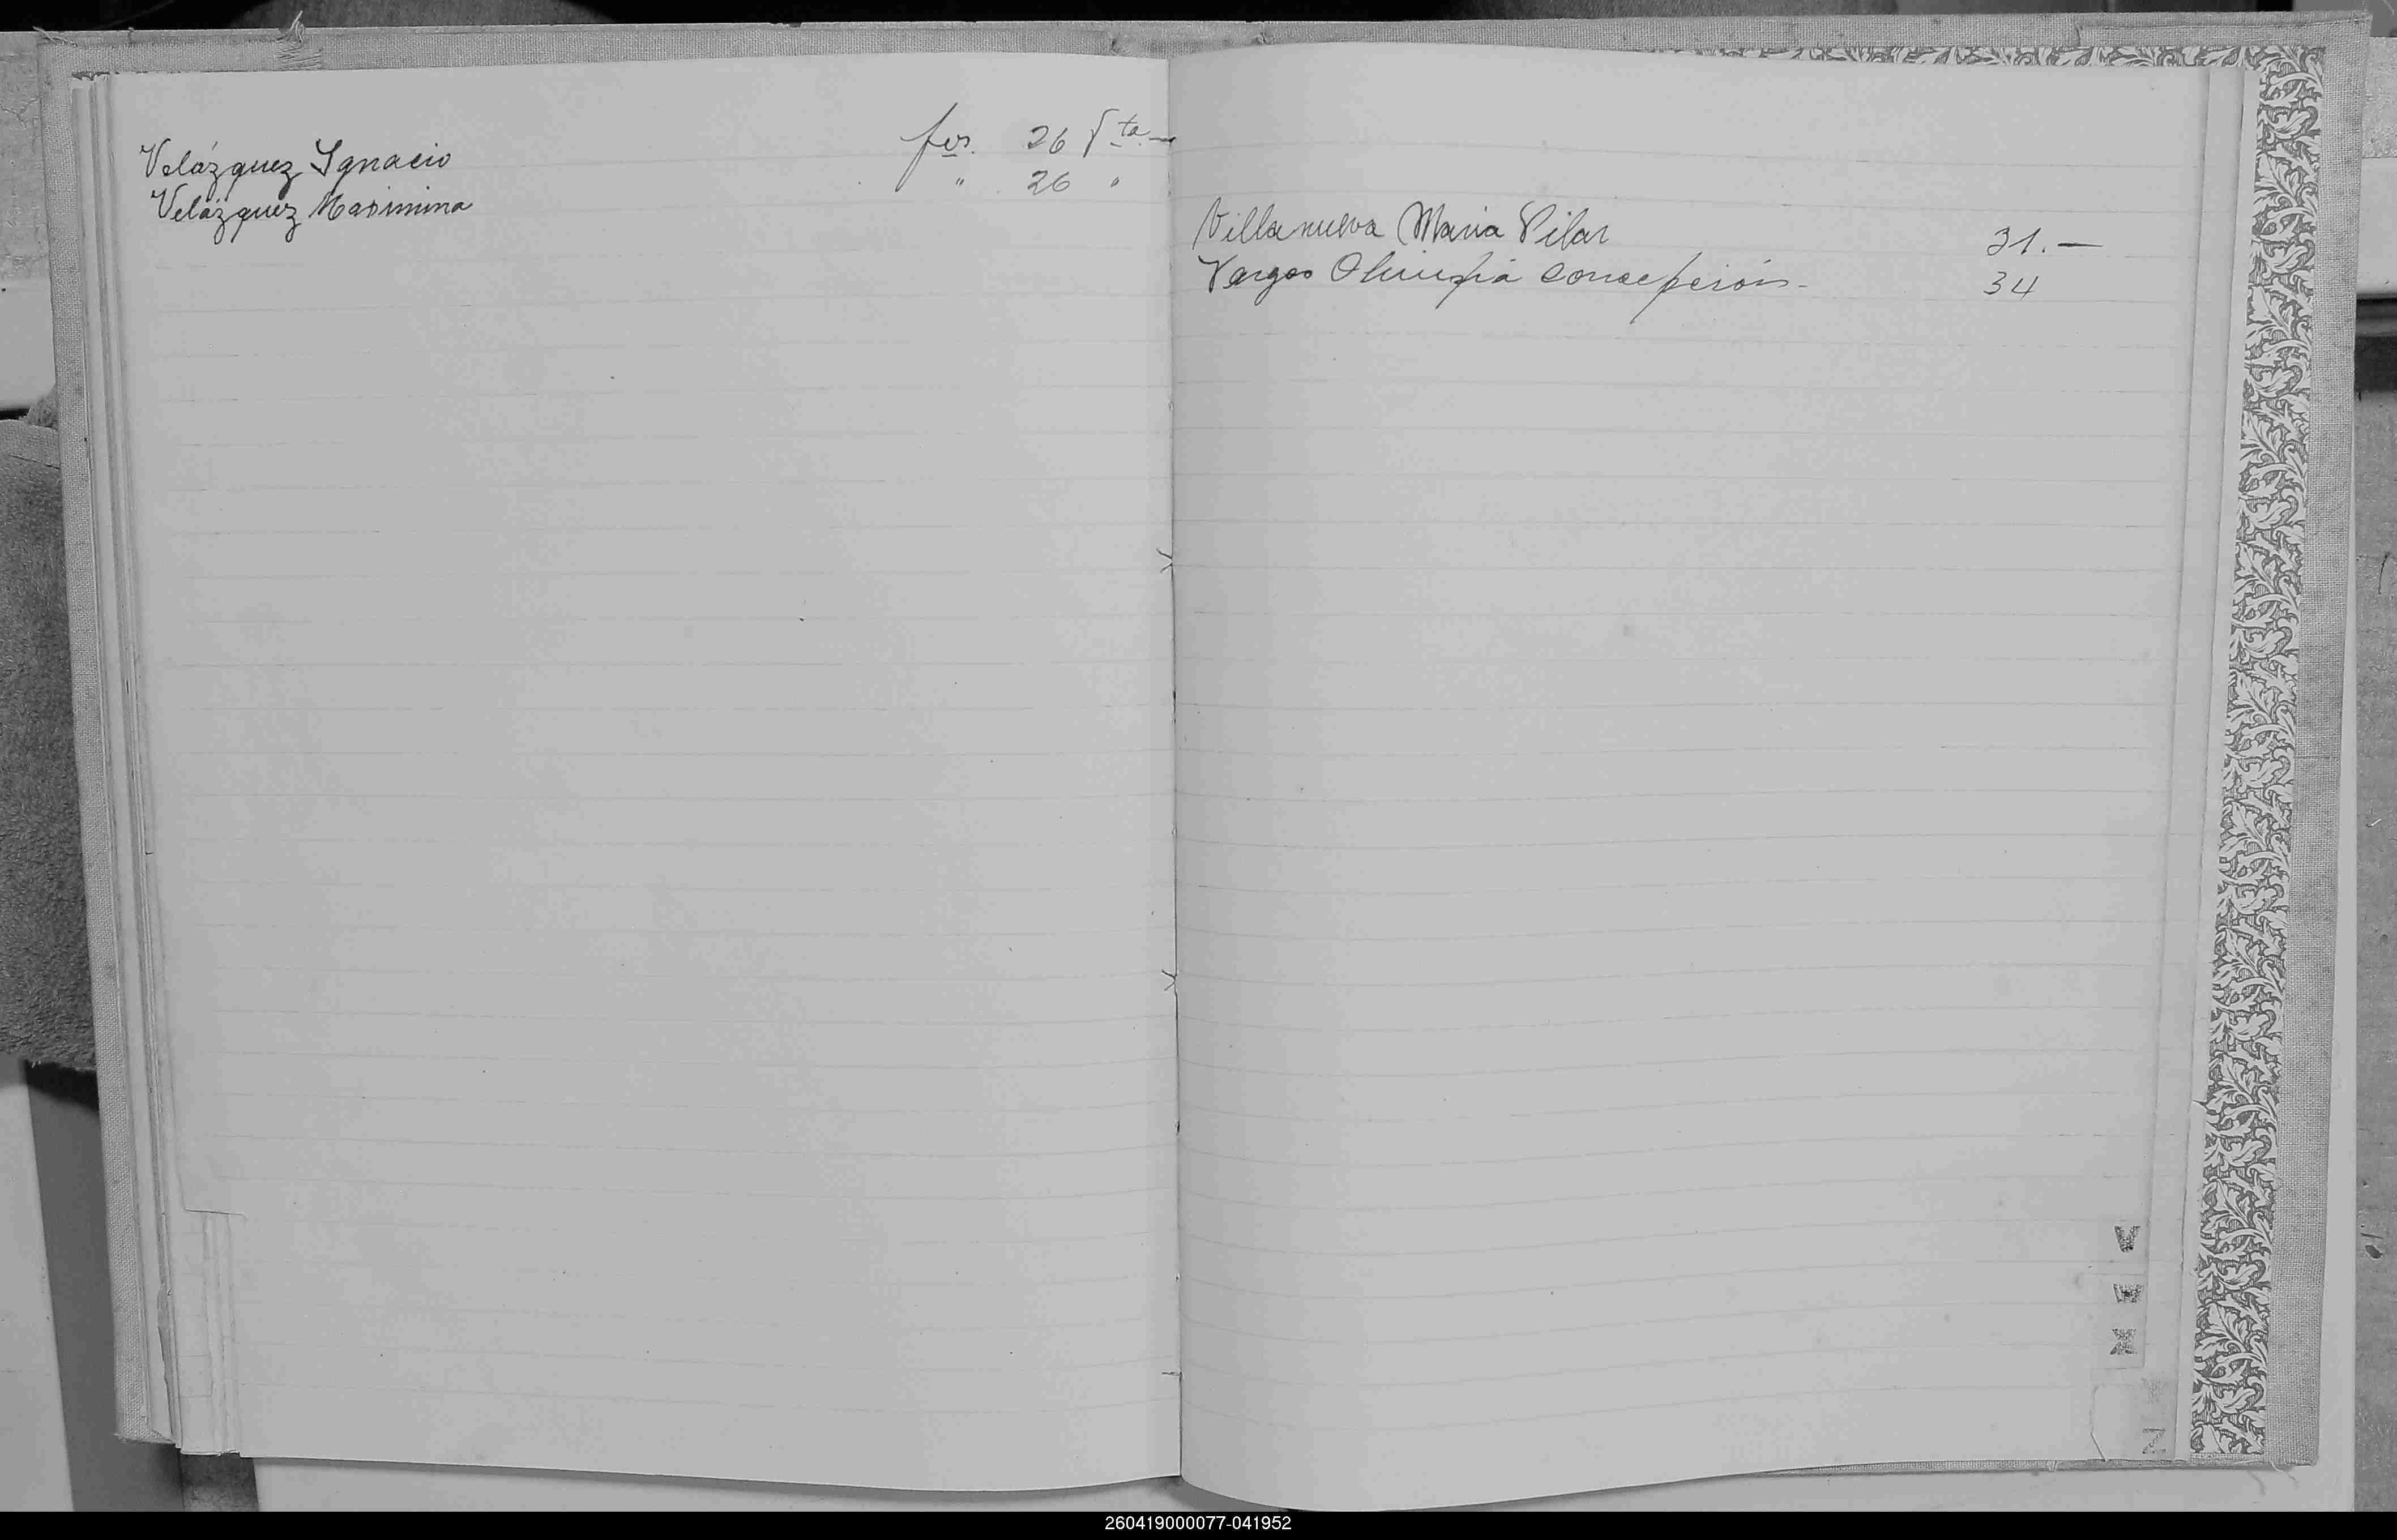 Velázquez Ignacio fos. 26 Vta.—
Velázquez Maximina " 26 "
Villanueva Maria Pilar 31.—
Vargas Olimpia Concepción- 34
V
W
X
Y
Z
260419000077-041952